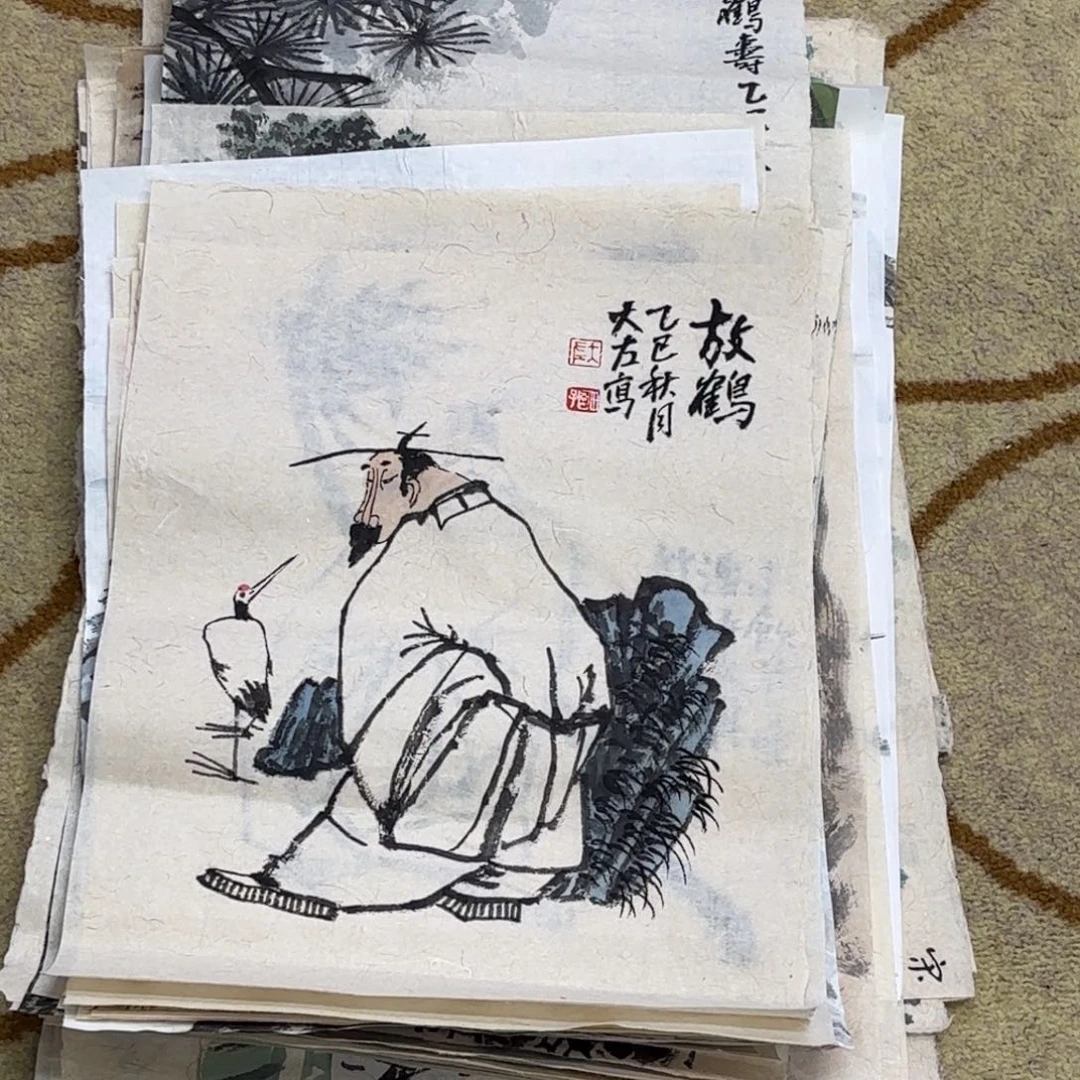 鶴壽乙
放鶴
乙巳秋月
大左寫
宋